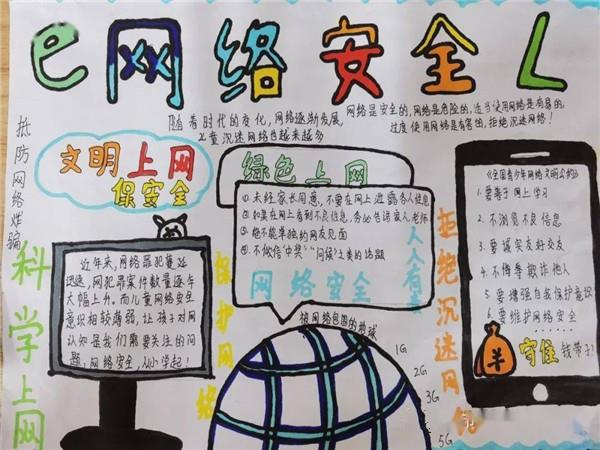 e网络安全L
随着时代的变化,网络逐渐发展,
儿童沉迷网络也越来越多
网络是安全的,网络是危险的,适当使用网络是有易的
过度使用网络是有害的,拒绝沉迷网络!
抵防网络炸骗
文明上网
保安全
绿色上网
①未经家长同意,不要在网上泄露务人信息
②如果在网上看到不良信息,务必告诉家人,老师
③绝不能单独约网友见面
④不做信"中奖""问候"之类的话题
网络安全
人人有责
《全国青少年网络文明公约》
1.要善于网上学习
2.不浏览不良信息
3.要诚实友好交友
4.不侮辱欺诈他人
5.要增强自我保护意识
6.要维护网络安全……
羊
守住钱带子!
科学上网
近年来,网络罪犯蔓延
迅速,网犯罪案件数量逐年
大幅上升。而儿童网络安全
意识相较薄弱,让孩子对网
认知是我们需要关注的问
题,网络安全,从小学起!
保护网络
被网络包围的地球
1G
2G
3G
5G
拒绝沉迷网络